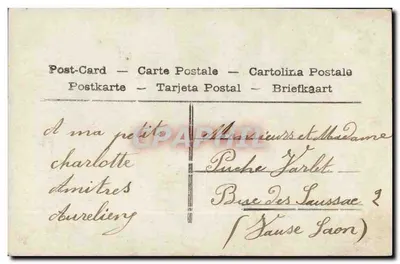 Post-Card — Carte Postale — Cartolina Postale
Postkarte — Tarjeta Postal — Briefkaart
A ma petit
charlotte
Aurelien
Messieurs et Madame
Puche Varlet
Rue des Saussac 2
(Vause Saon)